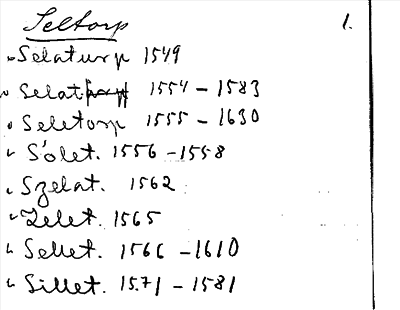 Seltorp 1.
Selaturp 1549
Selat 1554 - 1583
Seletorp 1555 - 1630
Sölet. 1556 - 1558
Szelat. 1562
Zelet. 1565
Sellet. 1566 - 1610
Sillet. 1571 - 1581